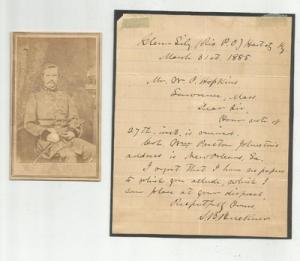 Glen Lily (Rio P.O.) Hart Co. Ky
March 31st 1885
Mr. W. P. Hopkins
Lawrence, Mass
Dear Sir,
Your note of
27th inst. is received.
Col. Wm Preston Johnston's
address is New Orleans, La.
I regret that I have no papers
to which you allude, which I
can place at your disposal.
Respectfully Yours
S. B. Buckner